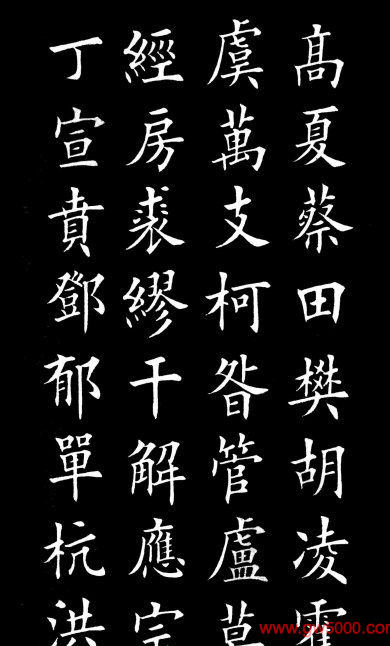 高夏蔡田樊胡凌霍
虞萬支柯昝管盧莫
經房裘繆干解應宗
丁宣賁鄧郁單杭洪
www.gw5000.com